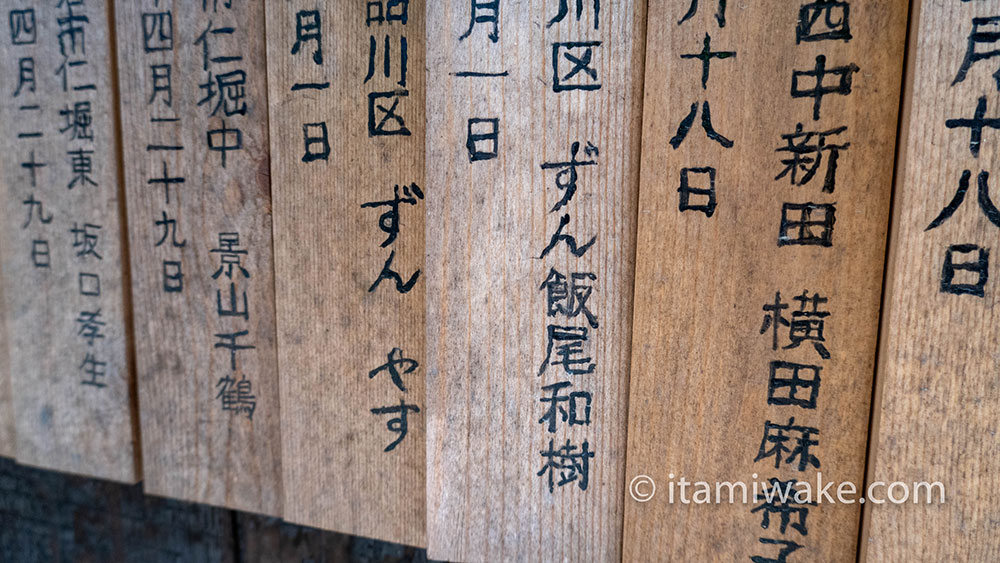 月十八日
西中新田 横田麻希子
月十八日
川区 ずん飯尾和樹
月一日
品川区 ずん やす
月一日
仁堀中 景山千鶴
四月二十九日
市仁堀東 坂口孝生
四月二十九日
© itamiwake.com